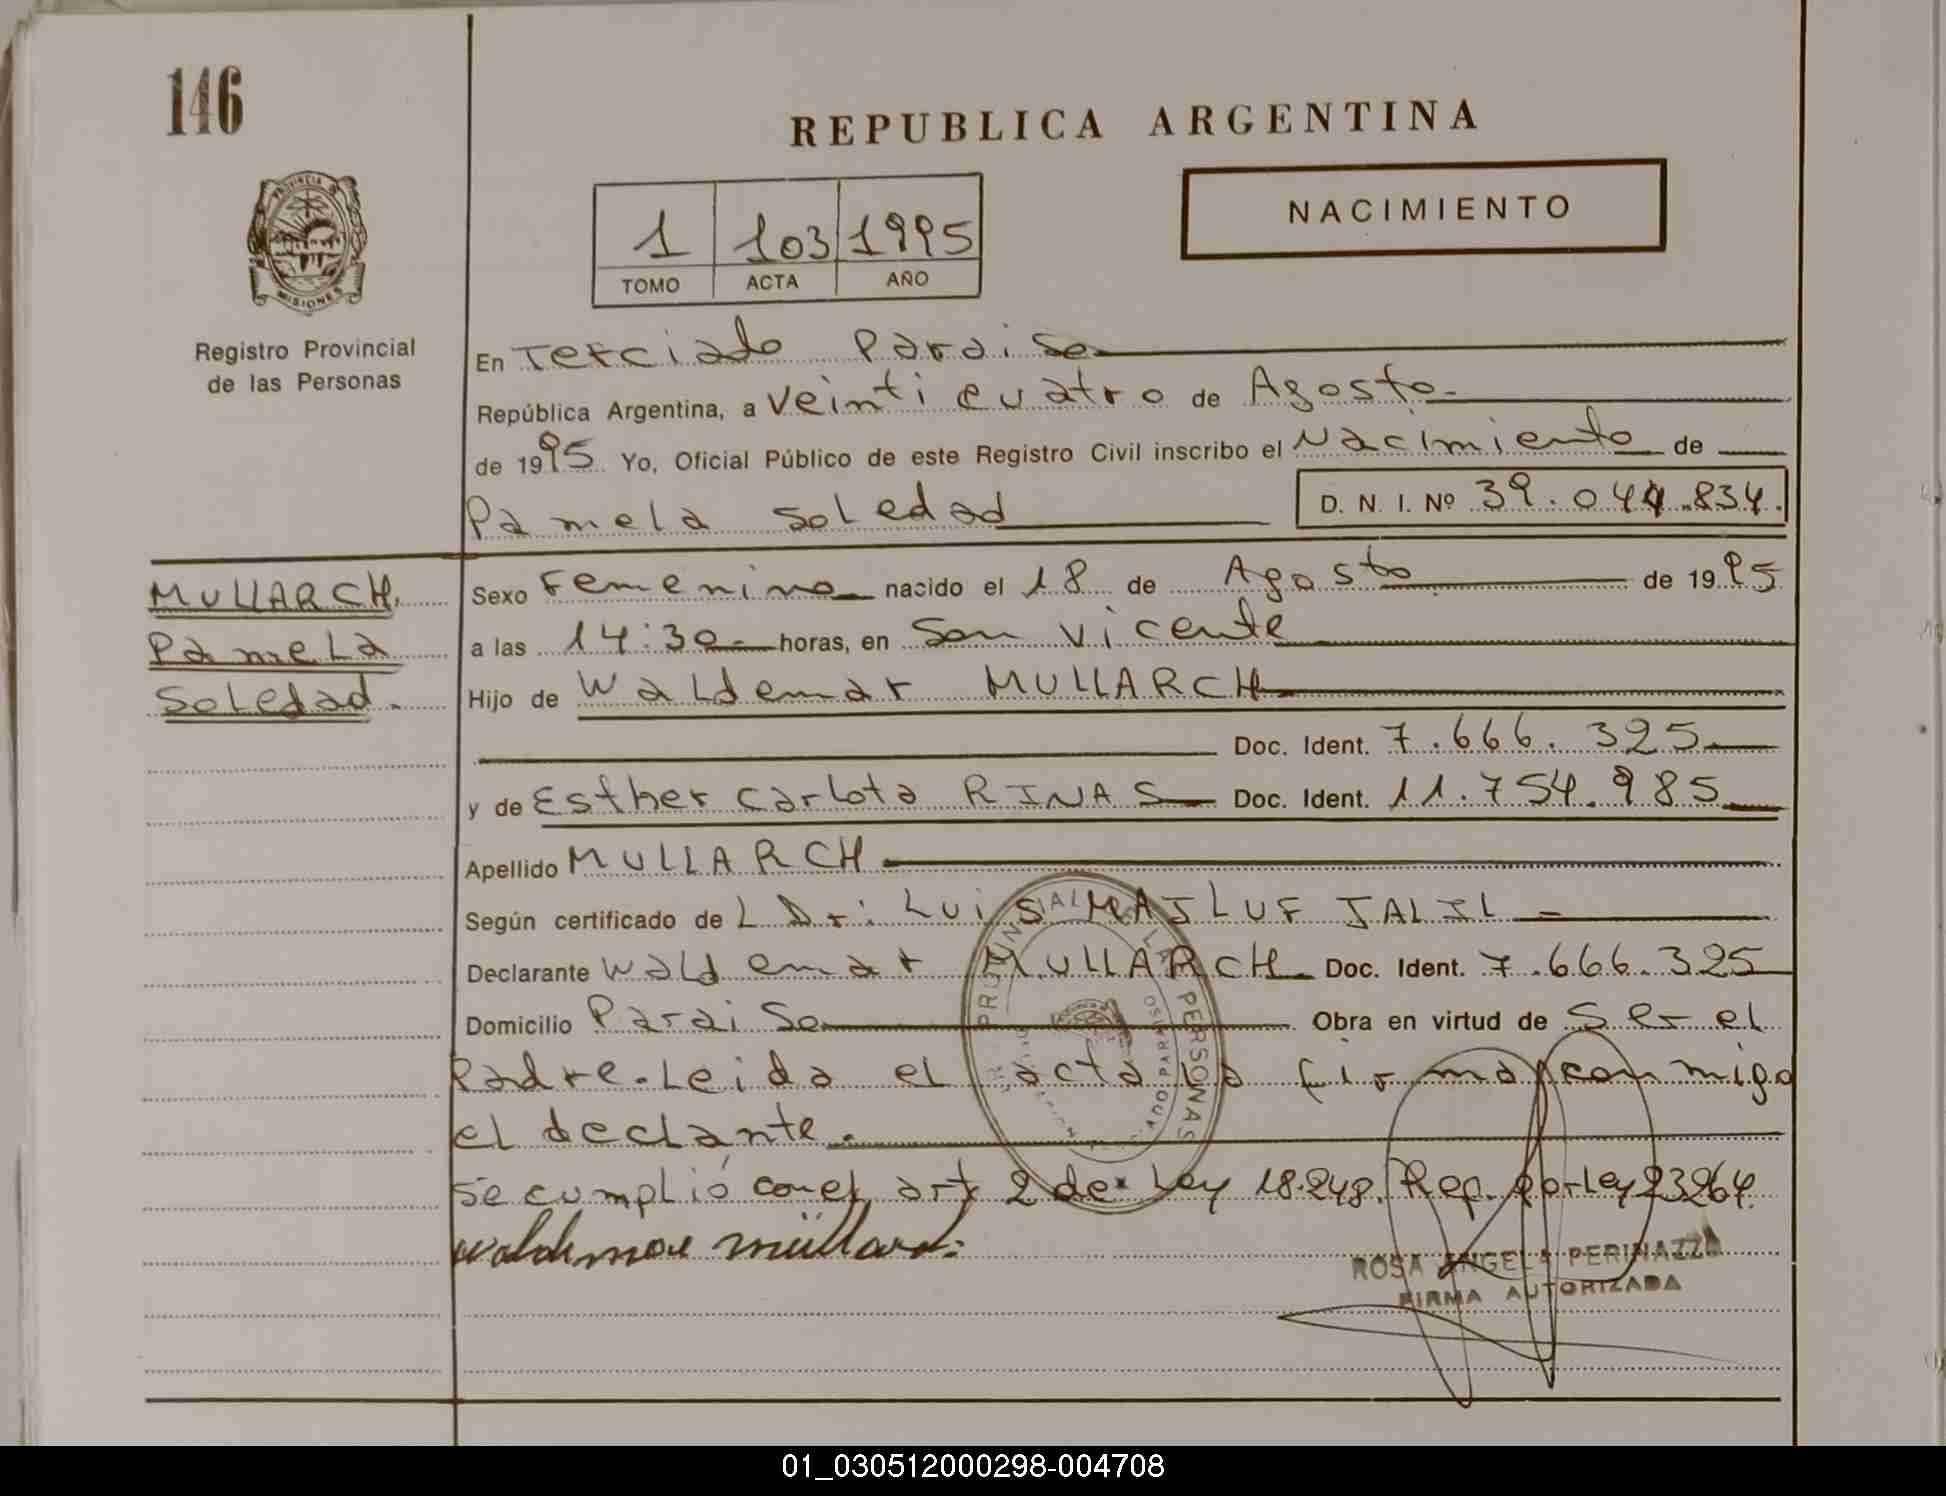 146
REPUBLICA ARGENTINA
NACIMIENTO
1 103 1995
TOMO ACTA AÑO
PROVINCIA DE
MISIONES
Registro Provincial
de las Personas
En Terciado Paraiso
República Argentina, a veinticuatro de Agosto
de 1995 Yo, Oficial Público de este Registro Civil inscribo el Nacimiento de
Pamela Soledad
D. N. I. Nº 39.044.834.
MULLARCH.
Pamela
Soledad.
Sexo Femenino nacido el 18 de Agosto de 1995
a las 14:30 horas, en San Vicente
Hijo de Waldemar MULLARCH
Doc. Ident. 7.666.325
y de Esther Carlota RINAS Doc. Ident. 11.754.985
Apellido MULLARCH
Según certificado de L Dr: LUIS MAJLUF JALIL
Declarante Waldemar MULLARCH Doc. Ident. 7.666.325
Domicilio Paraiso Obra en virtud de Ser el
Padre. Leida el acta la firma conmigo
el declante.
Se cumplió con el art 2 de Ley 18.248. Rep. por Ley 23264.
Waldemar Müllarch
ROSA ANGELA PERINAZZO
FIRMA AUTORIZADA
01_030512000298-004708